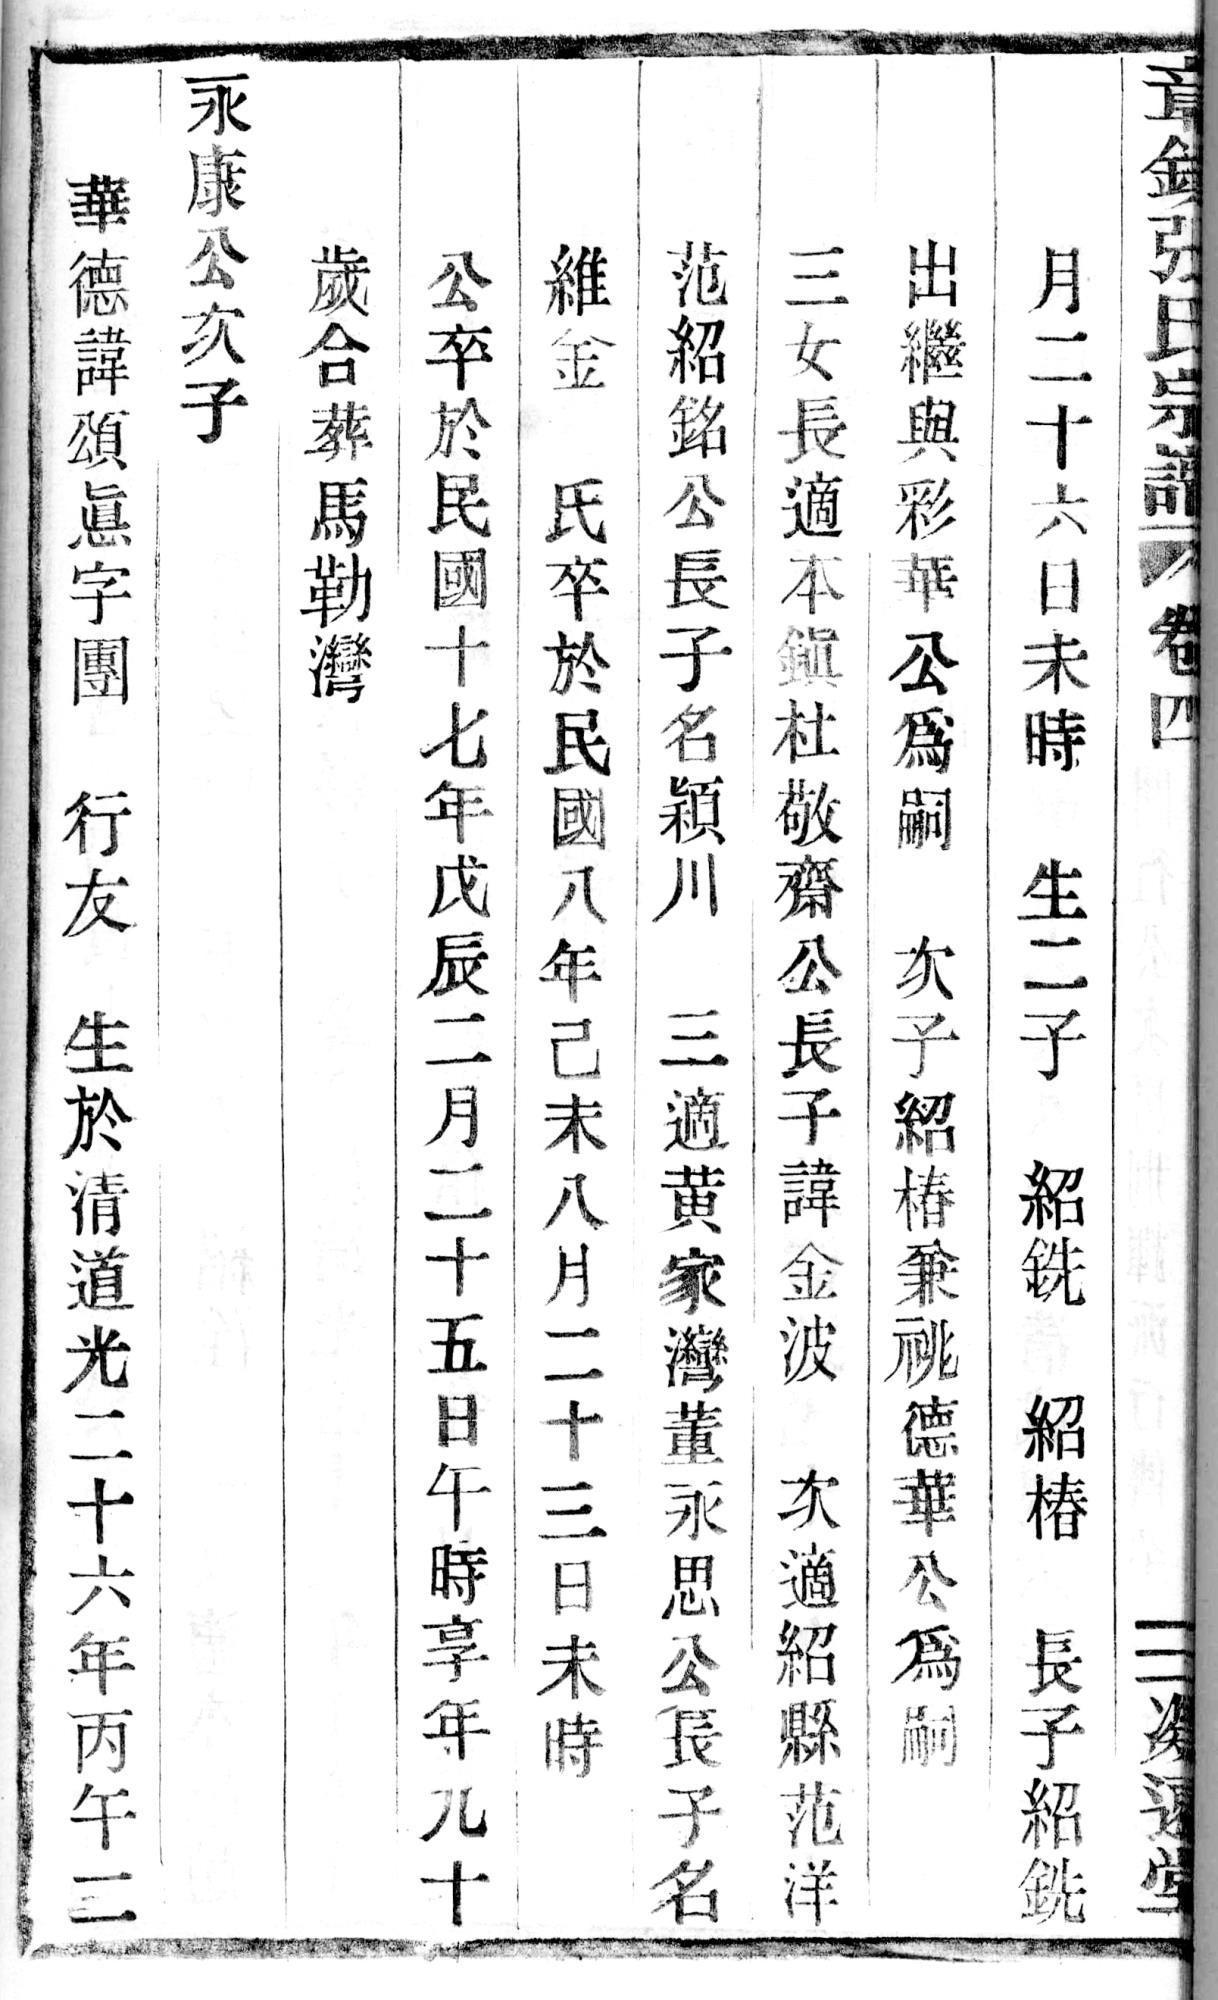 章鎮張氏宗譜 卷四 三 遠堂
月二十六日未時 生二子 紹銑 紹椿 長子紹銑
出繼與彩華公爲嗣 次子紹椿兼祧德華公爲嗣
三女長適本鎭杜敬齋公長子諱金波 次適紹縣范洋
范紹銘公長子名穎川 三適黄家灣董永思公長子名
維金 氏卒於民國八年己未八月二十三日未時
公卒於民國十七年戊辰二月二十五日午時享年九十
歲合葬馬勒灣
永康公次子
華德諱頌眞字團 行友 生於清道光二十六年丙午二